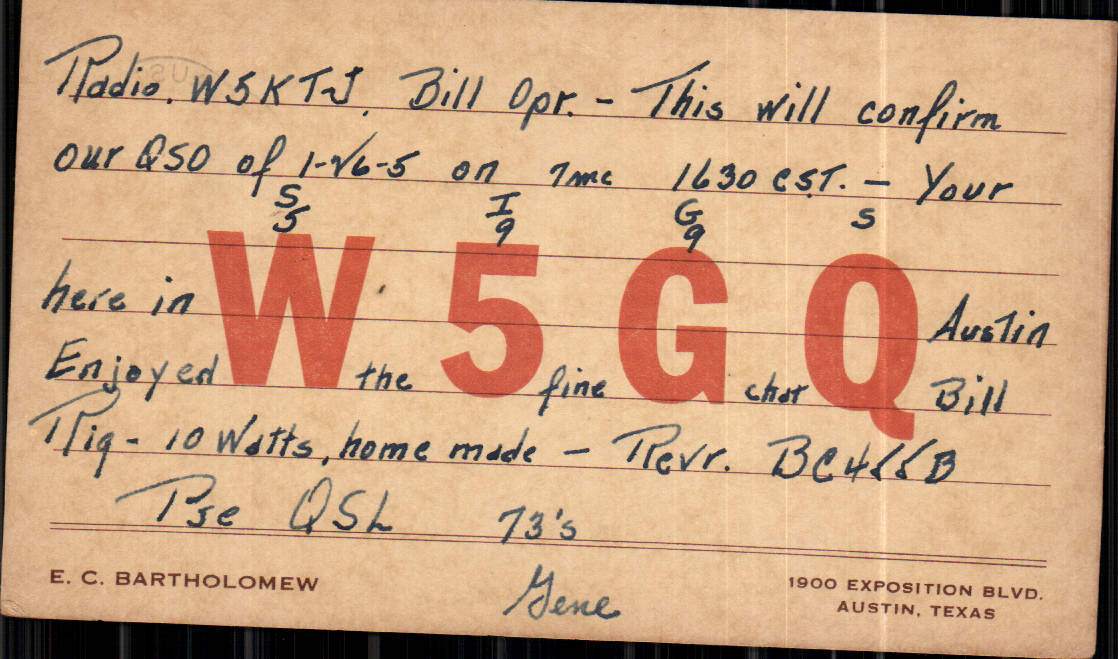 Radio. W5KTJ, Bill Opr. - This will confirm
our QSO of 1-26-5 on 7mc 1630 CST. - Your
S I G S
5 9 9
W5GQ
here in Austin
Enjoyed the fine chat Bill
Rig - 10 Watts, home made - Rcvr. BC455B
Pse QSL 73's
Gene
E. C. BARTHOLOMEW
1900 EXPOSITION BLVD.
AUSTIN, TEXAS